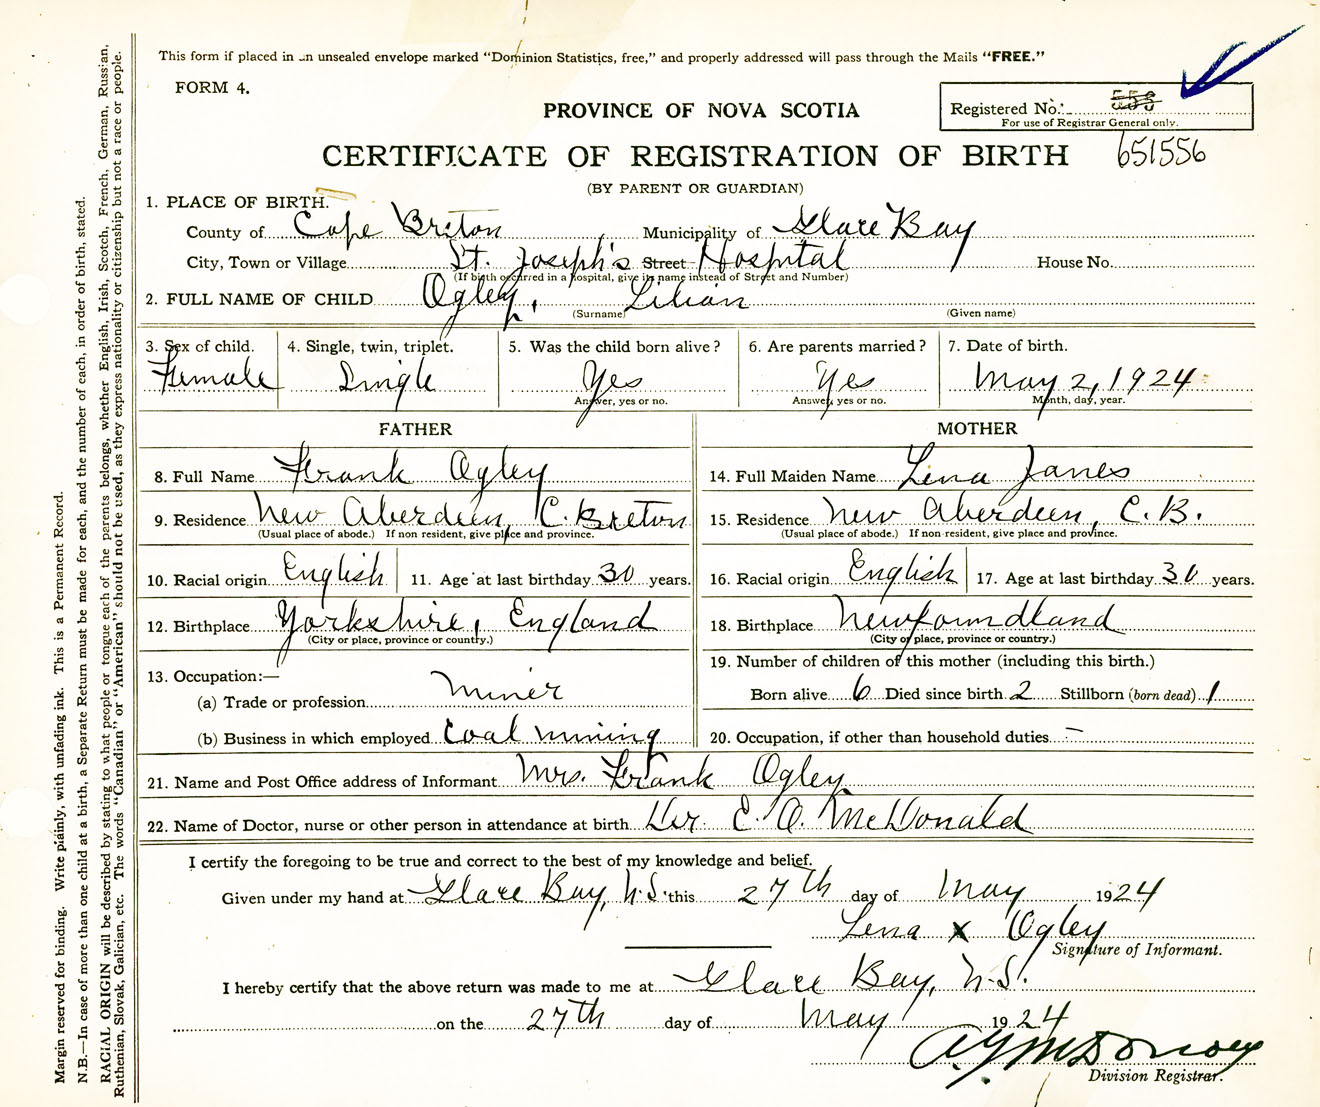 This form if placed in an unsealed envelope marked “Dominion Statistics, free,” and properly addressed will pass through the Mails “FREE.”
FORM 4.
PROVINCE OF NOVA SCOTIA
Registered No.
For use of Registrar General only.
CERTIFICATE OF REGISTRATION OF BIRTH 651556
(BY PARENT OR GUARDIAN)
1. PLACE OF BIRTH.
County of Cape Breton Municipality of Glace Bay
City, Town or Village St. Joseph's Street Hospital House No.
(If birth occurred in a hospital, give its name instead of Street and Number)
2. FULL NAME OF CHILD Ogley, Lilian
(Surname) (Given name)
3. Sex of child. 4. Single, twin, triplet. 5. Was the child born alive? 6. Are parents married? 7. Date of birth.
Female Single Yes Yes May 2, 1924
Answer, yes or no. Answer, yes or no. Month, day, year.
FATHER MOTHER
8. Full Name Frank Ogley 14. Full Maiden Name Lena Janes
9. Residence New Aberdeen, C. Breton 15. Residence New Aberdeen, C.B.
(Usual place of abode.) If non resident, give place and province. (Usual place of abode.) If non-resident, give place and province.
10. Racial origin English 11. Age at last birthday 30 years. 16. Racial origin English 17. Age at last birthday 30 years.
12. Birthplace Yorkshire, England 18. Birthplace Newfoundland
(City or place, province or country.) (City or place, province or country.)
13. Occupation:— 19. Number of children of this mother (including this birth.)
(a) Trade or profession Miner Born alive 6 Died since birth 2 Stillborn (born dead) 1
(b) Business in which employed Coal mining 20. Occupation, if other than household duties –
21. Name and Post Office address of Informant Mrs. Frank Ogley
22. Name of Doctor, nurse or other person in attendance at birth Dr. E. O. McDonald
I certify the foregoing to be true and correct to the best of my knowledge and belief.
Given under my hand at Glace Bay, N.S. this 27th day of May 1924
Lena x Ogley
Signature of Informant.
I hereby certify that the above return was made to me at Glace Bay, N.S.
on the 27th day of May 1924
Division Registrar.
Margin reserved for binding. Write plainly, with unfading ink. This is a Permanent Record.
N.B.—In case of more than one child at a birth, a Separate Return must be made for each, and the number of each, in order of birth, stated.
RACIAL ORIGIN will be described by stating to what people or tongue each of the parents belongs, whether English, Irish, Scotch, French, German, Russian,
Ruthenian, Slovak, Galician, etc. The words “Canadian” or “American” should not be used, as they express nationality or citizenship but not a race or people.